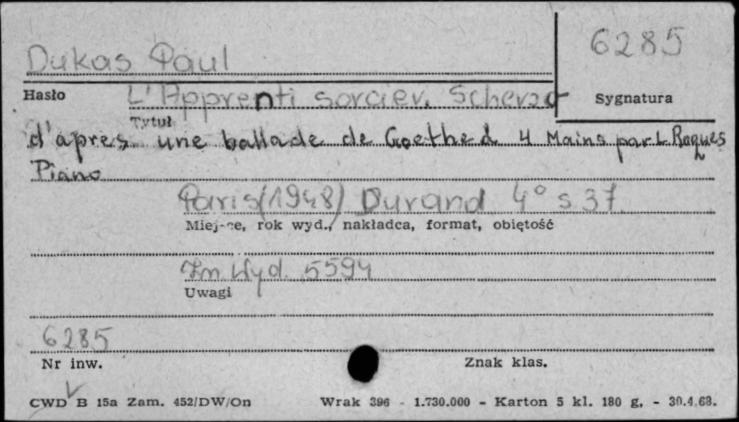 Dukas Paul
6285
Hasło
L'Apprenti sorcier. Scherzo
Sygnatura
Tytuł
d'apres une ballade de Goethe à 4 Mains par L. Roques
Piano
Paris (1948) Durand 4° s 37.
Miejsce, rok wyd., nakładca, format, objętość
Zn. Wyd. 5594
Uwagi
6285
Nr inw.
Znak klas.
CWD B 15a Zam. 452/DW/On
Wrak 396 - 1.730.000 - Karton 5 kl. 180 g. - 30.4.63.